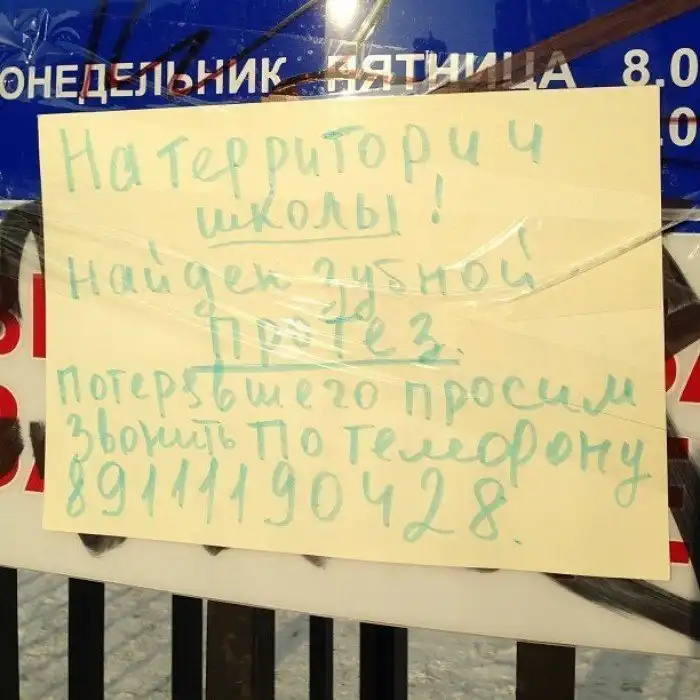 ОНЕДЕЛЬНИК ПЯТНИЦА 8.0
На территории
школы!
Найден зубной
протез.
потерявшего просим
звонить по телефону
89111190428.